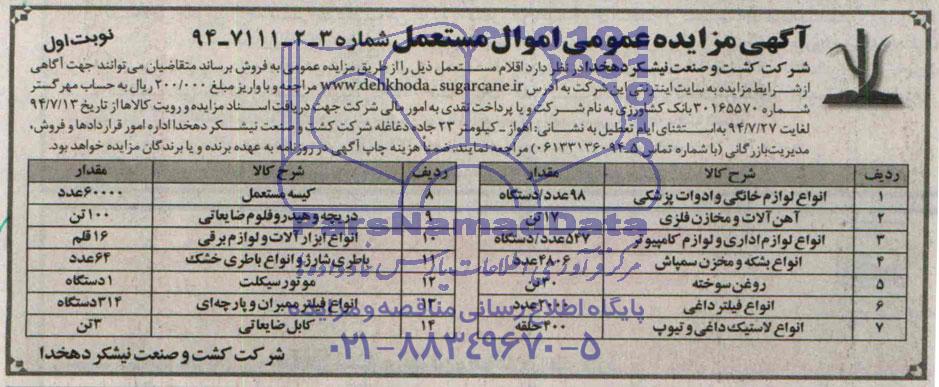 آگهی مزایده عمومی اموال مستعمل شماره ۳-۲-۷۱۱۱-۹۴
نوبت اول
شرکت کشت و صنعت نیشکر دهخدا در نظر دارد اقلام مستعمل ذیل را از طریق مزایده عمومی به فروش برساند متقاضیان می توانند جهت آگاهی
از شرایط مزایده به سایت اینترنتی این شرکت به آدرس www.dehkhoda_sugarcane.ir مراجعه و با واریز مبلغ ۲۰۰/۰۰۰ ریال به حساب مهر گستر
شماره ۳۰۱۶۵۵۷۰ بانک کشاورزی به نام شرکت و یا پرداخت نقدی به امور مالی شرکت جهت دریافت اسناد مزایده و رویت کالاها از تاریخ ۹۴/۷/۱۳
لغایت ۹۴/۷/۲۷ به استثنای ایام تعطیل به نشانی: اهواز ـ کیلومتر ۲۳ جاده دغاغله شرکت کشت و صنعت نیشکر دهخدا اداره امور قراردادها و فروش،
مدیریت بازرگانی (با شماره تماس ۵-۰۶۱۳۳۱۳۶۰۹۴) مراجعه نمایند. ضمنا هزینه چاپ آگهی در روزنامه به عهده برنده و یا برندگان مزایده خواهد بود.
ردیف شرح کالا مقدار
۱ انواع لوازم خانگی و ادوات پزشکی ۹۸عدد/دستگاه
۲ آهن آلات و مخازن فلزی ۱۷تن
۳ انواع لوازم اداری و لوازم کامپیوتر ۵۴۷عدد/دستگاه
۴ انواع بشکه و مخزن سمپاش ۴۸۰۶عدد
۵ روغن سوخته ۴۰تن
۶ انواع فیلتر داغی ۲۰۰۰عدد
۷ انواع لاستیک داغی و تیوپ ۴۰۰حلقه
ردیف شرح کالا مقدار
۸ کیسه مستعمل ۶۰۰۰۰عدد
۹ دریچه و هیدروفلوم ضایعاتی ۱۰۰تن
۱۰ انواع ابزار آلات و لوازم برقی ۱۶قلم
۱۱ باطری شارژ و انواع باطری خشک ۶۴عدد
۱۲ موتور سیکلت ۱دستگاه
۱۳ انواع فیلتر ممبران و پارچه ای ۳۱۴دستگاه
۱۴ کابل ضایعاتی ۳تن
شرکت کشت و صنعت نیشکر دهخدا
ParsNamadData
مرکز فرآوری اطلاعات پارس نماد داده ها
پایگاه اطلاع رسانی مناقصه و مزایده
۰۲۱-۸۸۳۴۹۶۷۰-۵